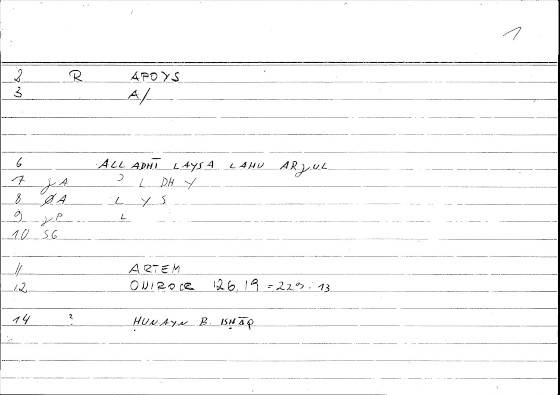 1
2 R APOYS
3 A/
6 ALLADHĪ LAYSA LAHU ARJUL
7 gA ʾ L DH Y
8 ØA L Y S
9 gP L
10 SG
11 ARTEM
12 ONIROCR 126,19 = 229:13
14 ? ḤUNAYN B. ISḤĀQ